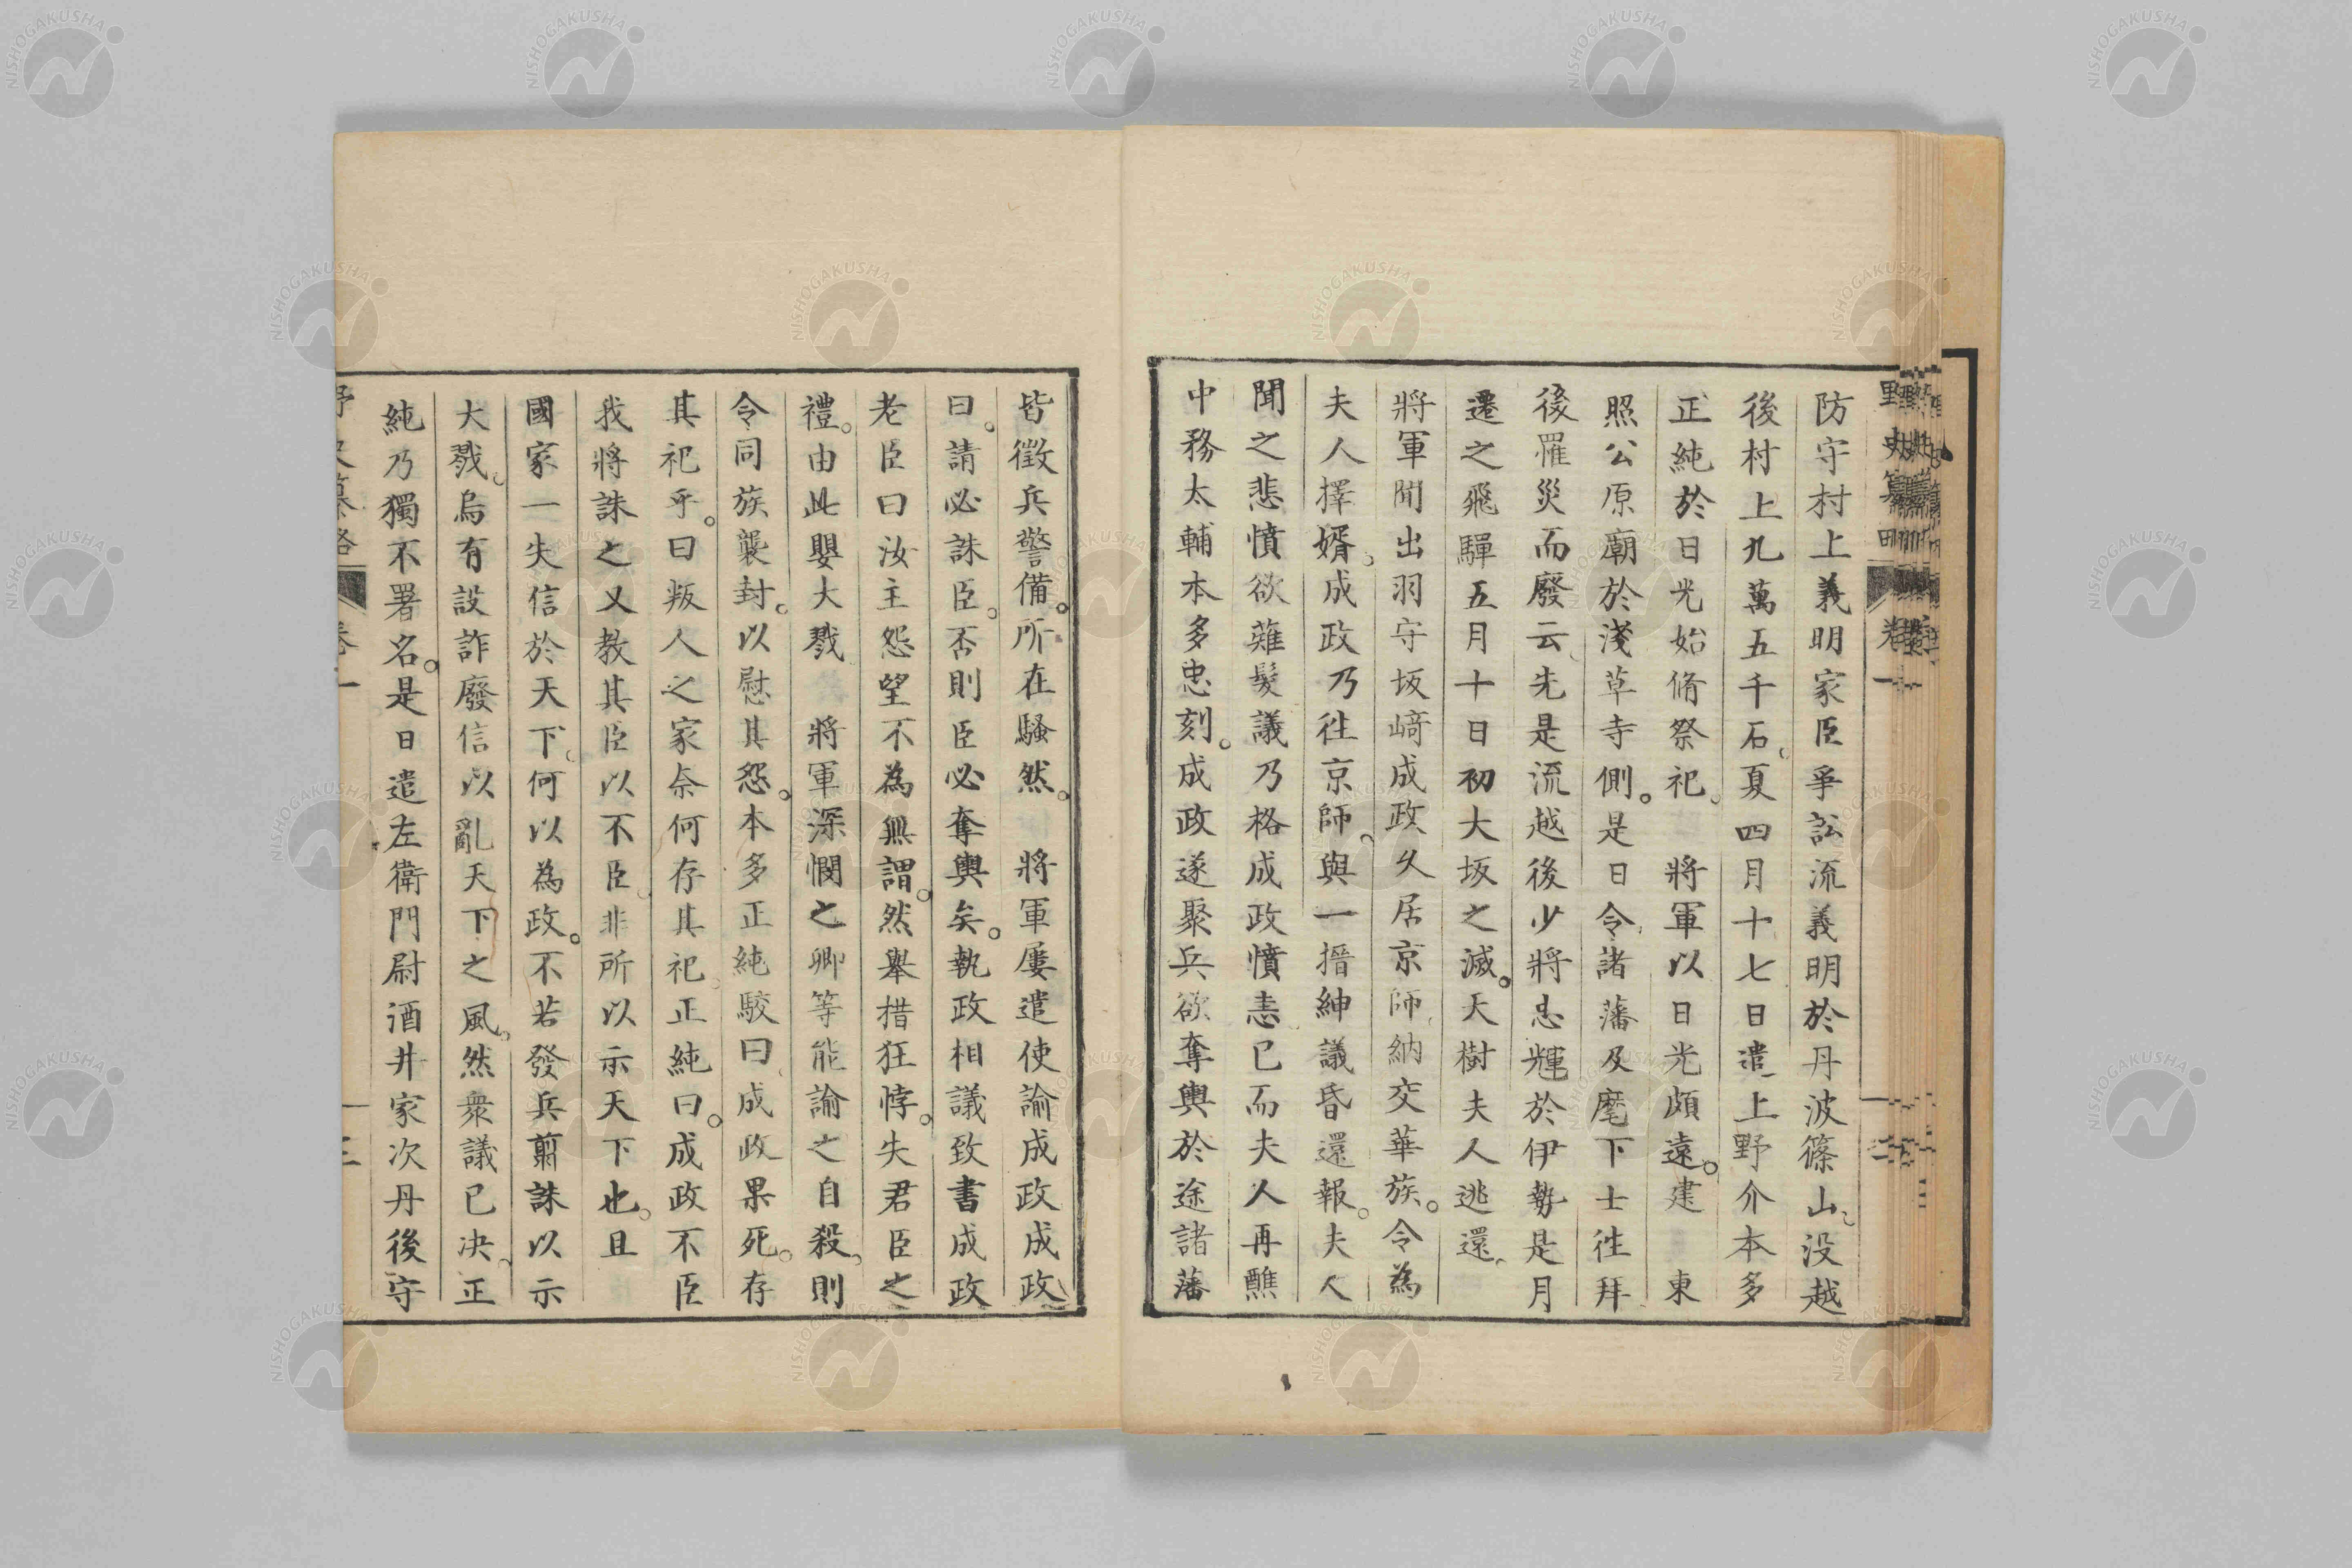 防守村上義明家臣爭訟流義明於丹波篠山没越
後村上九萬五千石夏四月十七日遣上野介本多
正純於日光始脩祭祀。將軍以日光頗遠。建 東
照公原廟於淺草寺側。是日令諸藩及麾下士徃拜
後罹災而廢云先是流越後少將忠輝於伊勢是月
遷之飛驒五月十日初大坂之滅。天樹夫人逃還
將軍聞出羽守坂﨑成政久居京師納交華族。令為
夫人擇婿。成政乃徃京師。與一搢紳議昏還報。夫人
聞之悲憤欲薙髮議乃格成政憤恚已而夫人再醮
中務太輔本多忠刻。成政遂聚兵欲奪輿於途諸藩
皆徵兵警備。所在騷然。 將軍屢遣使諭成政成政
曰。請必誅臣。否則臣必奪輿矣。執政相議致書成政
老臣曰汝主怨望不為無謂。然舉措狂悖。失君臣之
禮。由此嬰大戮 將軍深憫之卿等能諭之自殺。則
令同族襲封。以慰其怨。本多正純駮曰成政果死。存
其祀乎。曰叛人之家奈何存其祀正純曰。成政不臣
我將誅之又教其臣以不臣非所以示天下也。且
國家一失信於天下。何以為政。不若發兵翦誅以示
大戮。烏有設詐廢信以亂天下之風。然衆議已决。正
純乃獨不署名。是日遣左衛門尉酒井家次丹後守